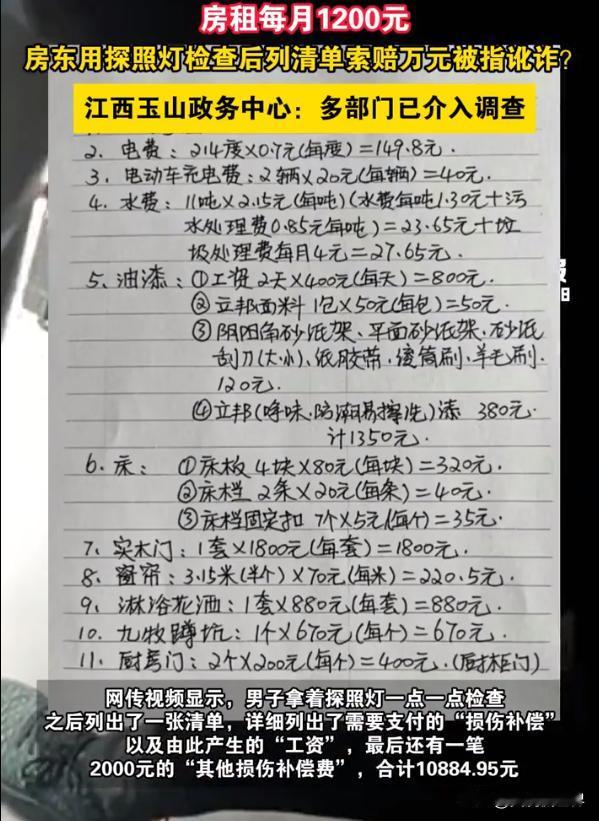 房租每月1200元
房东用探照灯检查后列清单索赔万元被指讹诈？
江西玉山政务中心：多部门已介入调查
2、电费：214度×0.7元(每度)=149.8元.
3、电动车充电费：2辆×20元(每辆)=40元.
4、水费：11吨×2.15元(每吨)(水费每吨1.30元十污
水处理费0.85元每吨)=23.65元十垃
圾处理费每月4元=27.65元.
5、油漆：①工资 2天×400元(每天)=800元.
②立邦面料 1包×50元(每包)=50元.
③阴阳角砂纸架、平面砂纸架、砂纸
刮刀(大小)、纸胶带、滚筒刷、羊毛刷.
120元.
④立邦(净味、防潮易擦洗)漆 380元.
计1350元.
6、床：①床板 4块×80元(每块)=320元.
②床栏 2条×20元(每条)=40元.
③床栏固定扣 7个×5元(每个)=35元.
7、实木门：1套×1800元(每套)=1800元.
8、窗帘：3.15米(半个)×70元(每米)=220.5元.
9、淋浴花洒：1套×880元(每套)=880元.
10、九牧蹲坑：1个×670元(每个)=670元.
11、厨房门：2个×200元(每个)=400元.(厨柜门)
网传视频显示，男子拿着探照灯一点一点检查
之后列出了一张清单，详细列出了需要支付的“损伤补偿”
以及由此产生的“工资”，最后还有一笔
2000元的“其他损伤补偿费”，合计10884.95元